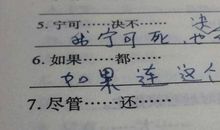 5. 宁可……决不……
决
我宁可死,也
6. 如果……都……
如果连这个
7. 尽管……还……